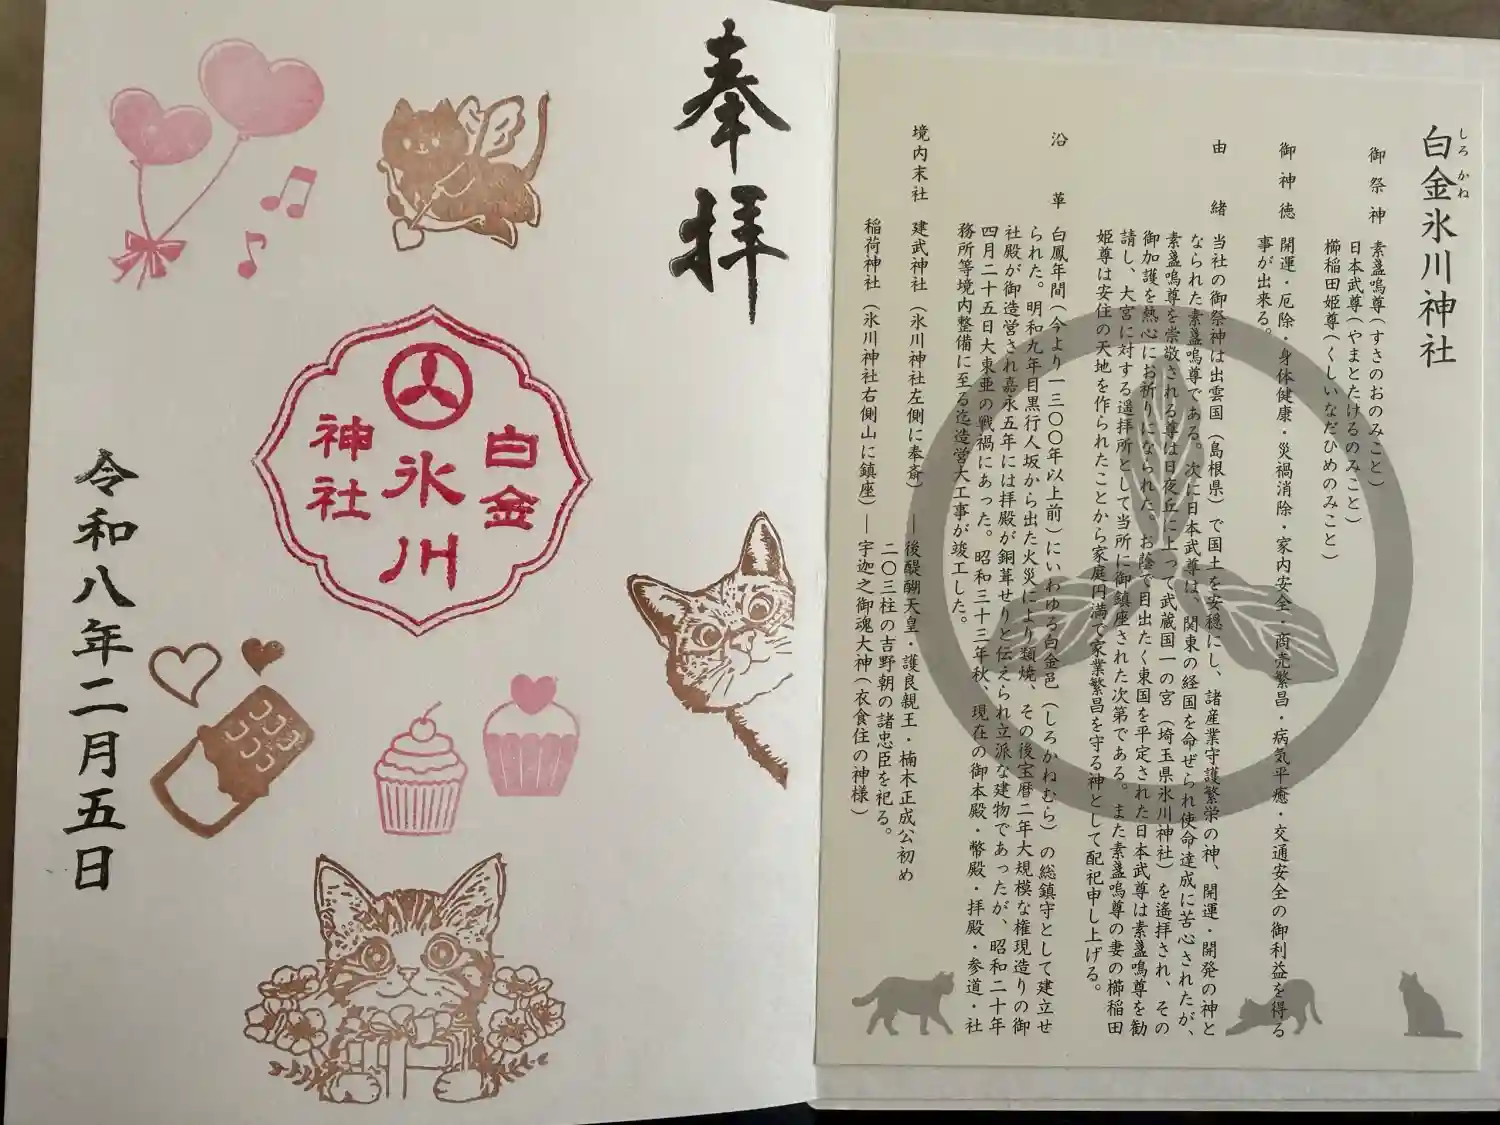 白金氷川神社
しろ かね
御祭神 素盞嗚尊(すさのおのみこと)
日本武尊(やまとたけるのみこと)
櫛稲田姫尊(くしいなだひめのみこと)
御神徳 開運・厄除・身体健康・災禍消除・家内安全・商売繁昌・病気平癒・交通安全の御利益を得る
事が出来る。
由緒 当社の御祭神は出雲国(島根県)で国土を安穏にし、諸産業守護繁栄の神、開運・開発の神と
なられた素盞嗚尊である。次に日本武尊は、関東の経国を命ぜられ使命達成に苦心されたが、
素盞嗚尊を崇敬される尊は日夜丘に上って武蔵国一の宮(埼玉県氷川神社)を遙拝され、その
御加護を熱心にお祈りになられた。お陰で目出たく東国を平定された日本武尊は素盞嗚尊を勧
請し、大宮に対する遥拝所として当所に御鎮座された次第である。また素盞嗚尊の妻の櫛稲田
姫尊は安住の天地を作られたことから家庭円満で家業繁昌を守る神として配祀申し上げる。
沿革 白鳳年間(今より一三〇〇年以上前)にいわゆる白金邑(しろかねむら)の総鎮守として建立せ
られた。明和九年目黒行人坂から出た火災により類焼、その後宝暦二年大規模な権現造りの御
社殿が御造営され嘉永五年には拝殿が銅葺せりと伝えられ立派な建物であったが、昭和二十年
四月二十五日大東亜の戦禍にあった。昭和三十三年秋、現在の御本殿・幣殿・拝殿・参道・社
務所等境内整備に至る迄造営大工事が竣工した。
境内末社 建武神社(氷川神社左側に奉斎)―後醍醐天皇・護良親王・楠木正成公初め
二〇三柱の吉野朝の諸忠臣を祀る。
稲荷神社(氷川神社右側山に鎮座)―宇迦之御魂大神(衣食住の神様)
奉拝
白金
氷川
神社
令和八年二月五日